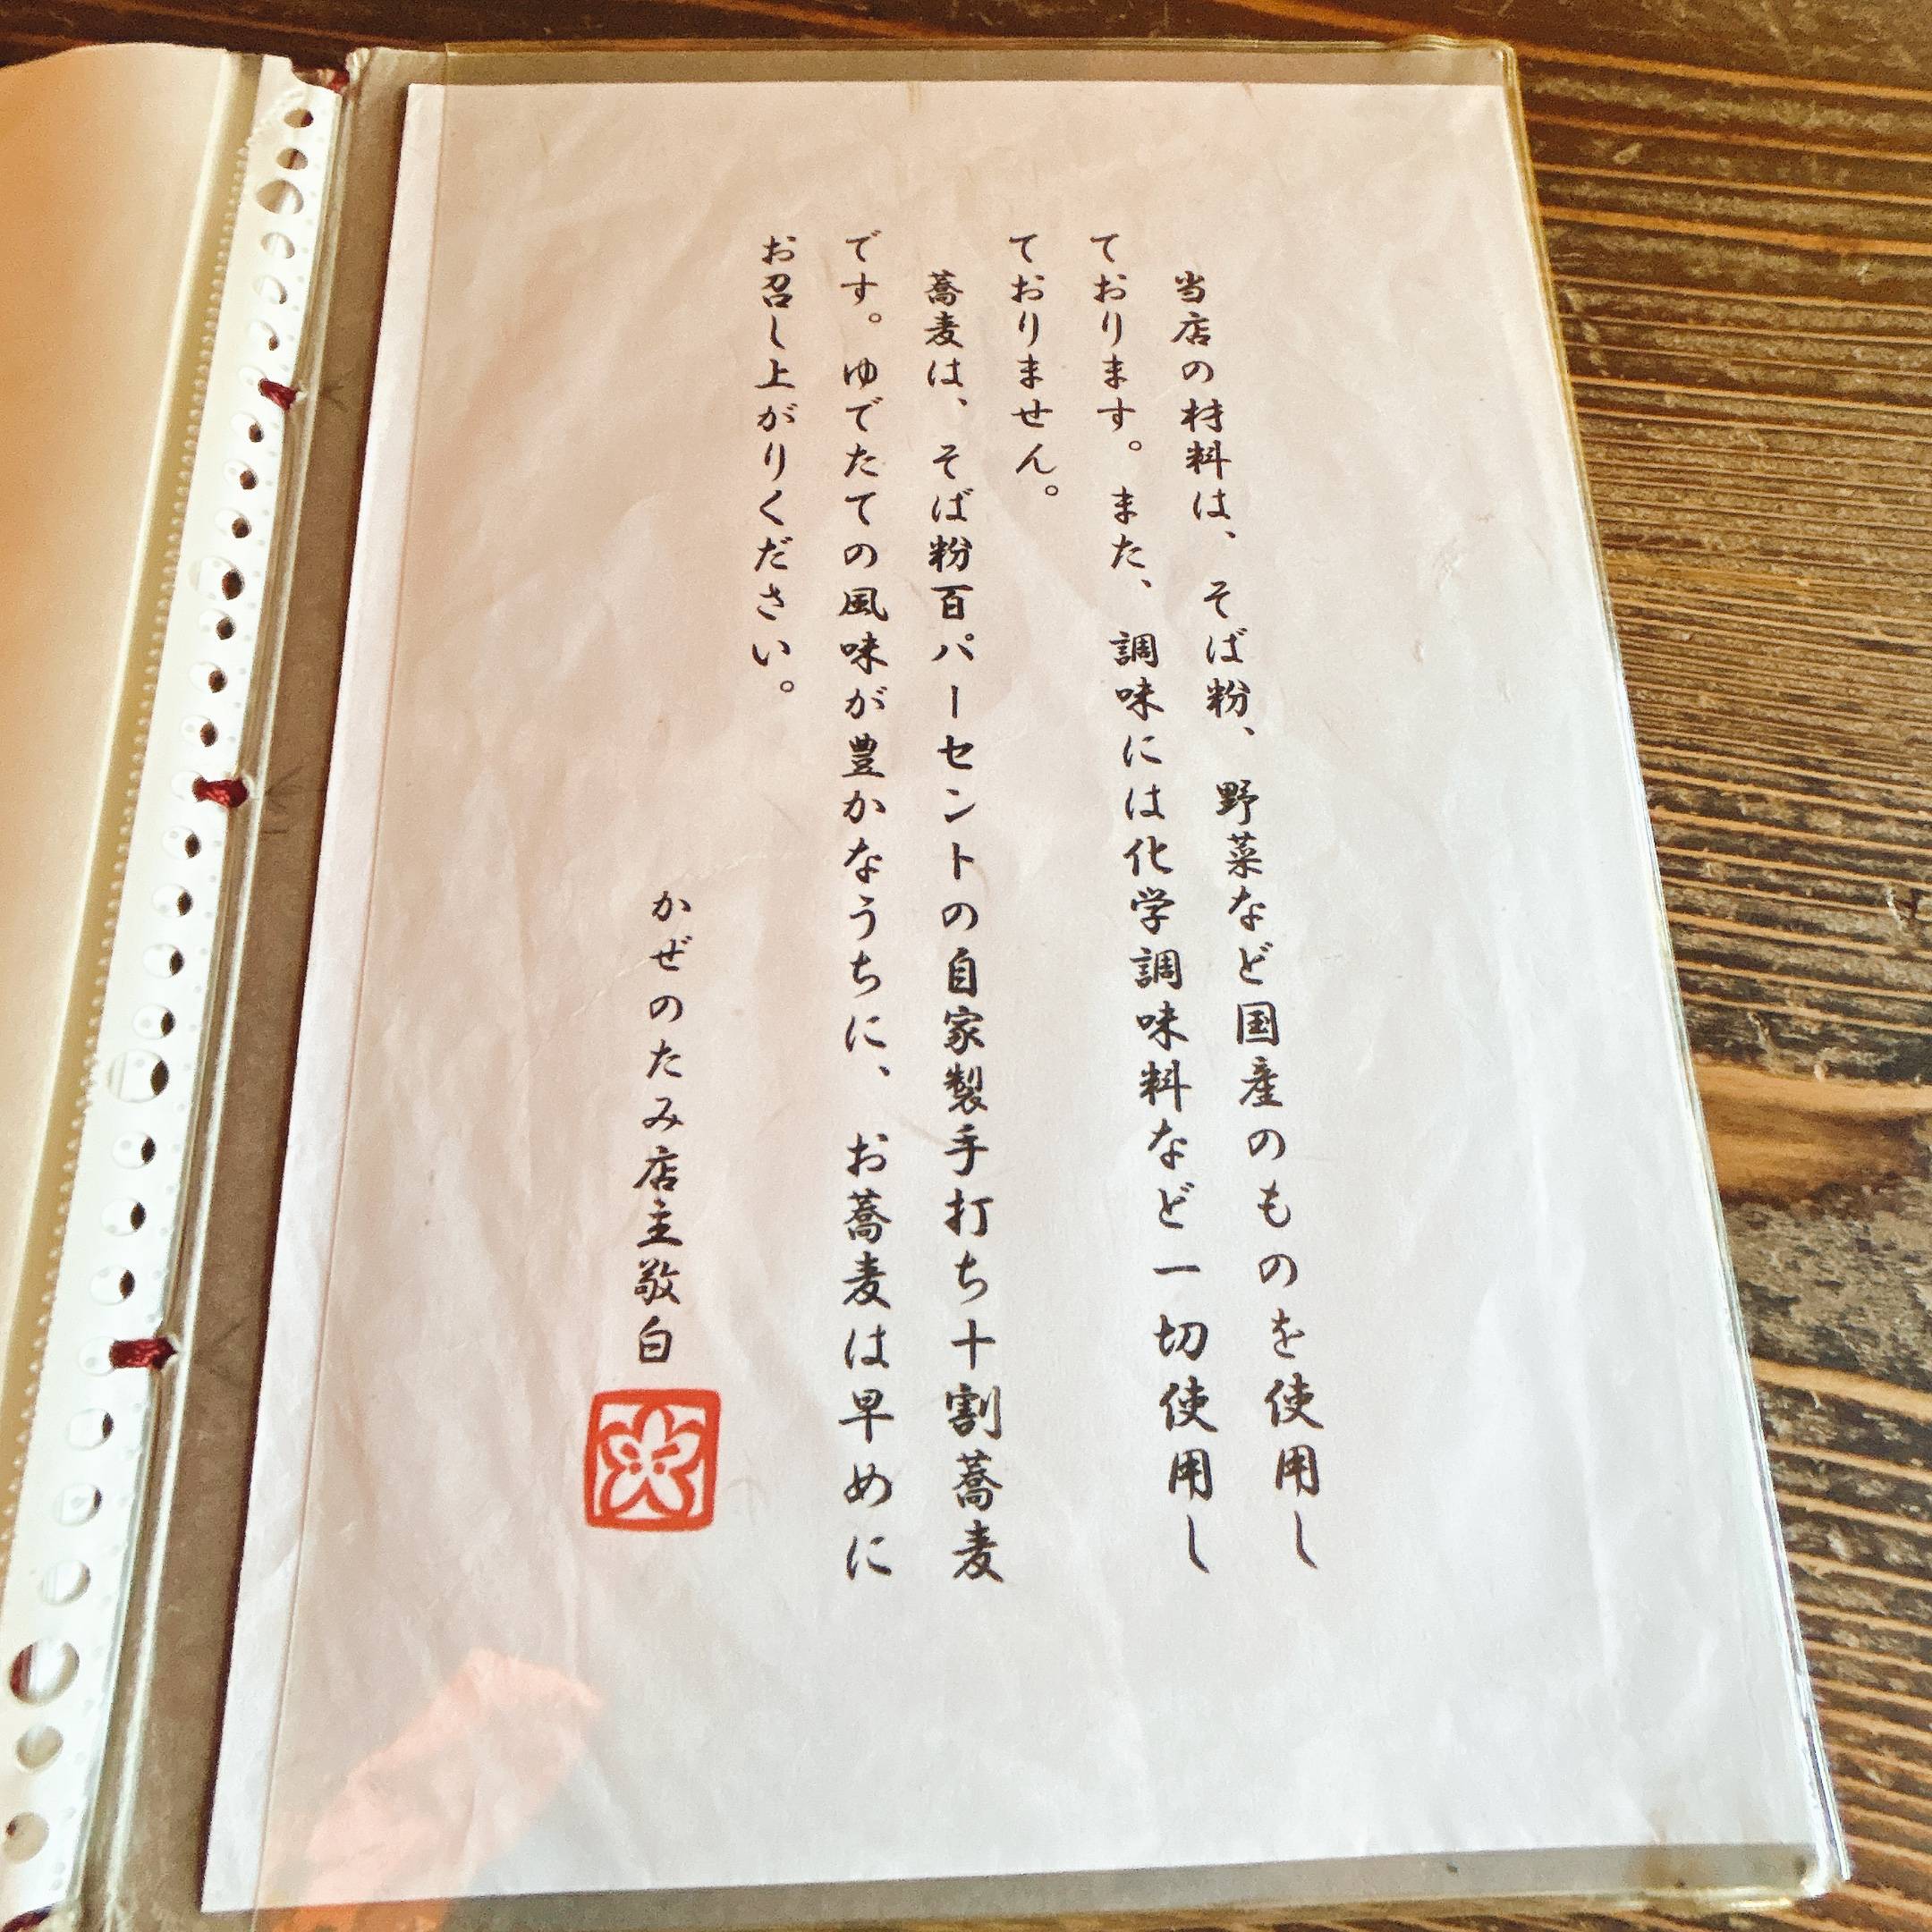 当店の材料は、そば粉、野菜など国産のものを使用し
ております。また、調味には化学調味料など一切使用し
ておりません。
蕎麦は、そば粉百パーセントの自家製手打ち十割蕎麦
です。ゆでたての風味が豊かなうちに、お蕎麦は早めに
お召し上がりください。
かぜのたみ店主敬白